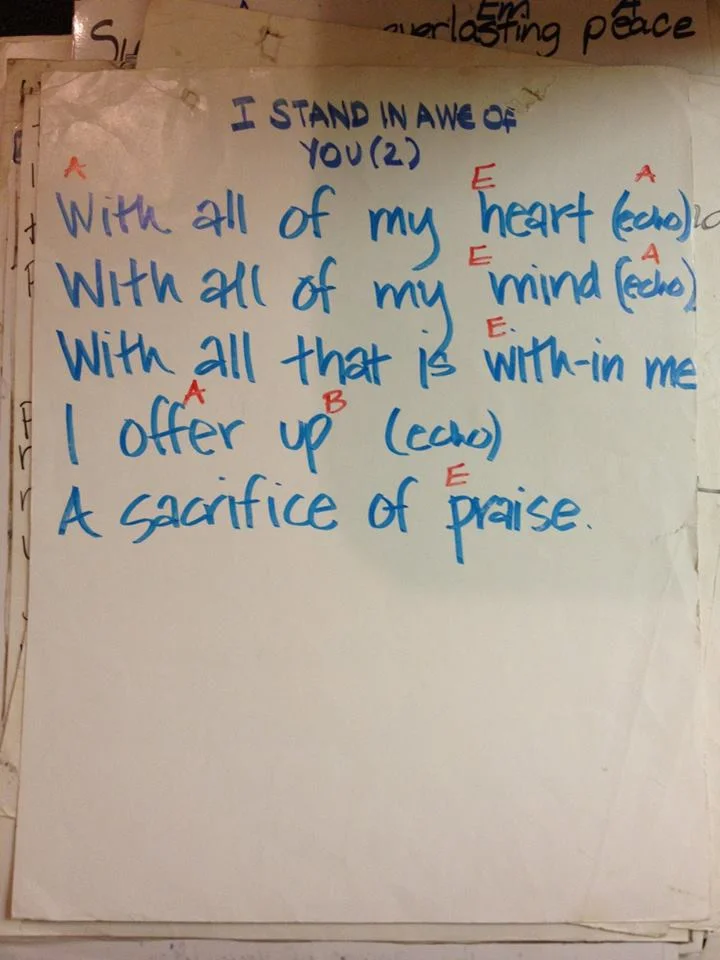 Em
everlasting peace
I STAND IN AWE OF
YOU (2)
A E A
With all of my heart (echo)
E A
With all of my mind (echo)
E
With all that is with-in me
A B
I offer up (echo)
E
A sacrifice of praise.